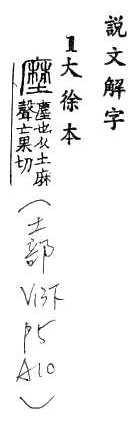 說文解字
1大徐本
塺塵也从土麻
聲亡果切
(土部
V13下
P5
A10)